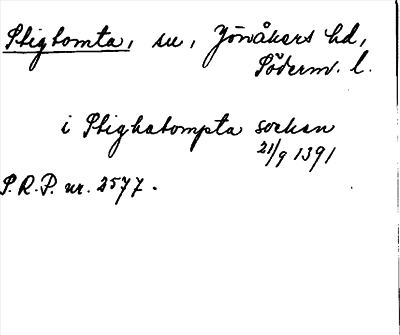 Stigtomta, sn, Jönåkers hd,
Söderm. l.
i Stighatompta sockan
21/9 1391
S.R.P. nr. 2577.